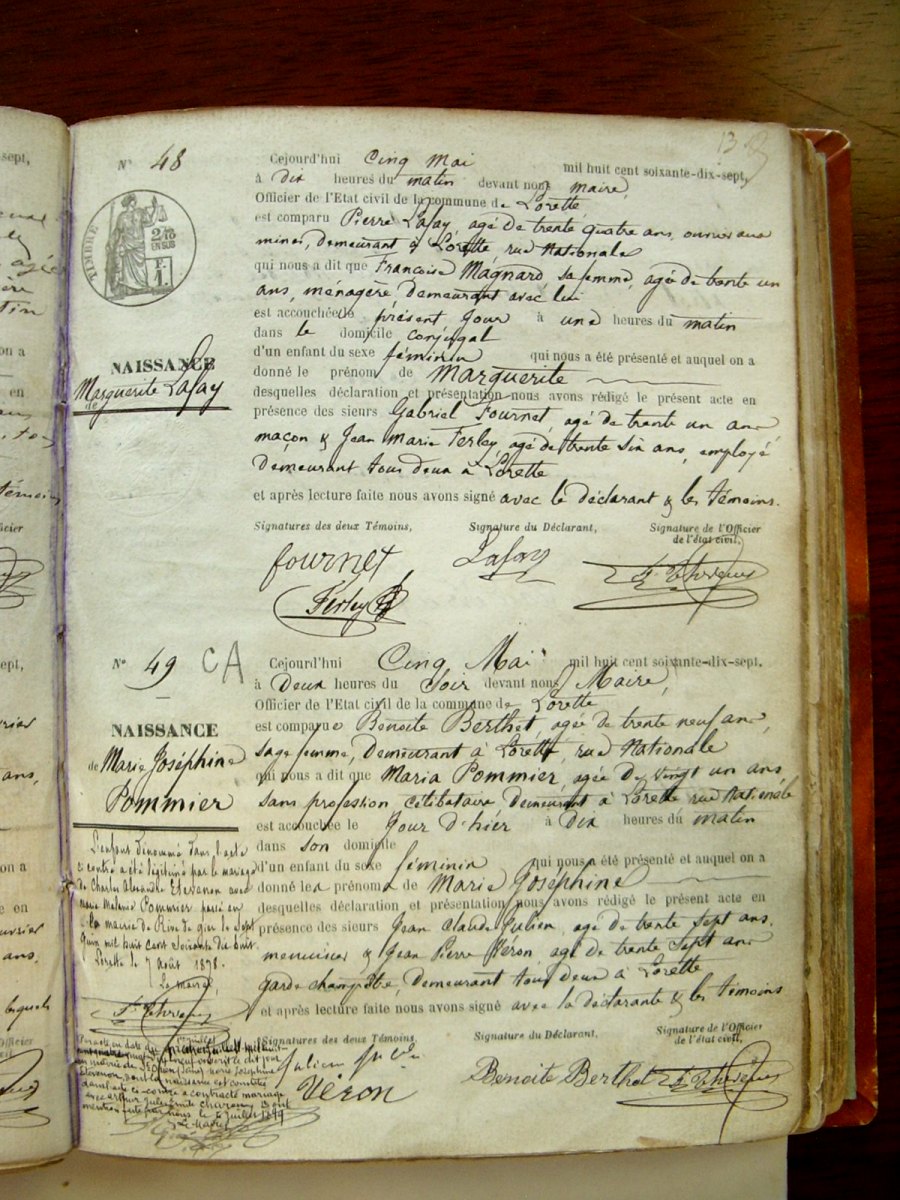 13
N° 48
TIMBRE
2/10
EN SUS
NAISSANCE
de Marguerite Lafay
Cejourd'hui Cinq Mai mil huit cent soixante-dix-sept,
à dix heures du matin devant nous maire,
Officier de l'Etat civil de la commune de Lorette
est comparu Pierre Lafay, agé de trente quatre ans, ouvrier aux
mines, demeurant à Lorette, rue Nationale
qui nous a dit que Francoise Magnard, sa femme, agée de trente un
ans, ménagère demeurant avec lui
est accouchée le présent jour à une heures du matin
dans le domicile conjugal
d'un enfant du sexe féminin qui nous a été présenté et auquel on a
donné le prénom de Marguerite
desquelles déclaration et présentation nous avons rédigé le présent acte en
présence des sieurs Gabriel Fournet, agé de trente un ans
maçon & Jean Marie Ferley, agé de trente six ans, employé
demeurant tous deux à Lorette
et après lecture faite nous avons signé avec le déclarant & les témoins.
Signatures des deux Témoins, Signature du Déclarant, Signature de l'Officier
de l'état civil,
fournet Lafay
Ferley
N° 49 CA
NAISSANCE
de Marie Joséphine
Pommier
Cejourd'hui Cinq Mai mil huit cent soixante-dix-sept.
à Deux heures du Soir devant nous Maire,
Officier de l'Etat civil de la commune de Lorette
est comparue Benoite Berthet, agée de trente neuf ans
sage femme, demeurant à Lorette, rue Nationale
qui nous a dit que Maria Pommier, agée de vingt un ans
sans profession célibataire demeurant à Lorette rue Nationale
est accouchée le jour d'hier à dix heures du matin
dans son domicile
d'un enfant du sexe féminin qui nous a été présenté et auquel on a
donné les prénoms de Marie Joséphine
desquelles déclaration et présentation nous avons rédigé le présent acte en
présence des sieurs Jean Claude Julien, agé de trente sept ans,
menuisier & Jean Pierre Véron, agé de trente sept ans
garde champêtre, demeurant tous deux à Lorette
et après lecture faite nous avons signé avec la déclarante & les témoins
Signatures des deux Témoins Signature du Déclarant, Signature de l'Officier
de l'état civil,
Julien
Véron
Benoite Berthet
L'enfant dénommé dans l'acte
ci contre a été légitimé par le mariage
de Charles Alexandre Etevenon avec
Maria Melanie Pommier passé en
la mairie de Rive de gier le sept
Juin mil huit cent soixante dix huit.
Lorette le 7 août 1878.
Le maire,
dont la naissance est constatée
dans acte ci-contre a contracté mariage
avec arthur Jules Emile
mention faite par nous le juillet 1899
Le Maire